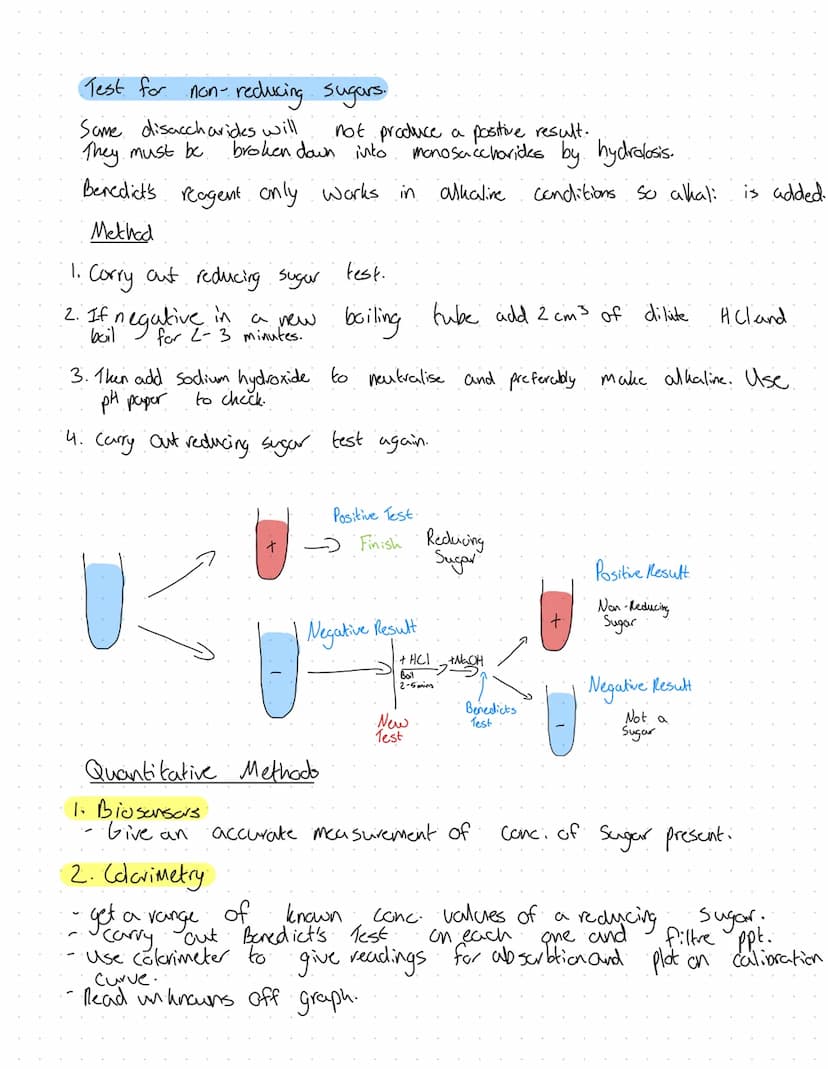 Test for non-reducing sugars.
Some disaccharides will not produce a positive result.
They must be broken down into monosaccharides by hydrolosis.
Benedict's reagent only works in alkaline conditions so alkali is added.
Method
1. Carry out reducing sugar test.
2. If negative in a new boiling tube add 2 cm³ of dilute HCl and
boil for 2-3 minutes.
3. Then add sodium hydroxide to neutralise and preferably make alkaline. Use
pH paper to check.
4. Carry out reducing sugar test again.
Positive Test
+
Finish
Reducing
Sugar
Negative Result
-
+ HCl
Boil
2-5 mins
+NaOH
New
Test
Benedicts
Test
Positive Result
+
Non-Reducing
Sugar
Negative Result
-
Not a
Sugar
Quantitative Methods
1. Biosensors
- Give an accurate measurement of conc. of sugar present.
2. Colorimetry
- get a range of known conc. values of a reducing sugar.
- carry out Benedict's Test on each one and filtre ppt.
- use colorimeter to give readings for absorbtion and plot on calibration
curve.
- Read unknowns off graph.